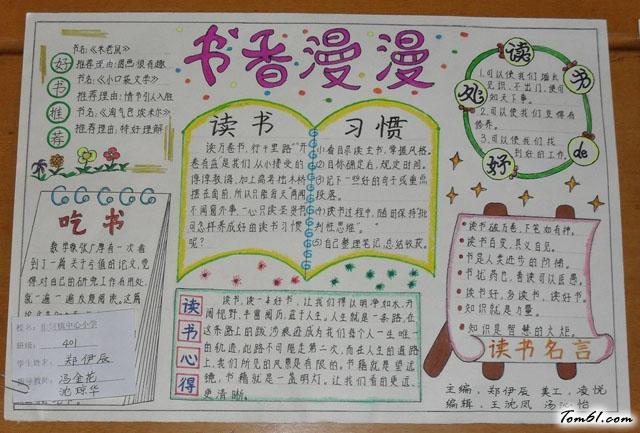 书香漫漫
好书推荐
书名:《木老鼠》
推荐理由:圆然很有趣
书名:《小口袋文学》
推荐理由:情节引人胜
书名:《淘气包埃米尔》
推荐理由:特好理解
读书的好处
1.可以使我们增长
见识,不出门,便可
知天下事。
2.可以使我们变得有
修养。
3.可以使我们找
到好的工作。
读书 习惯
读万卷书,行千里路
卷有益是我们从小接受的
谆谆教诲,加上高考
摆在面前,所以只能每天两闻
不闻窗外事,一心只读圣贤书
可怎样养成好的读书习惯
呢?
⑴看目录读主书,掌握风格。
⑵目标确定后,规定时间。
⑶记下一些好的句子或重点
段落。
⑷读书过程中,随时保持“批
判性思维”。
⑸自己整理笔记,总结收获。
吃书
数学家张广厚有一次看
到了一篇关于亏值的论文,觉
得对自己的研究工作有用处,
就一遍一遍反复阅读。这篇
校名:
中心小学
班级:
401
学生姓名:
郑伊辰
指导教师:
冯金花
沈琼华
读书心得
读书,读一本好书,让我们得以明净如水,开
阔视野,丰富阅历,益于人生。人生就是一条路,在
这条路上的跋涉痕迹成为我们每个人一生唯一
的轨迹,此路不可能走第二次,而在人生的道路
上,我们所见的风景是有限的。书籍就是望远
镜,书籍就是一盏明灯。让我们看的更远、
更清晰。
读书破万卷,下笔如有神。
读书百变,其义自见。
书是人类进步的阶梯。
书犹药也,善读可以医愚。
读书好,多读书,读好书。
知识就是力量。
知识是智慧的火炬。
读书名言
主编:郑伊辰 美工:凌悦
编辑:王沈凤 汤 怡
Tom61.com